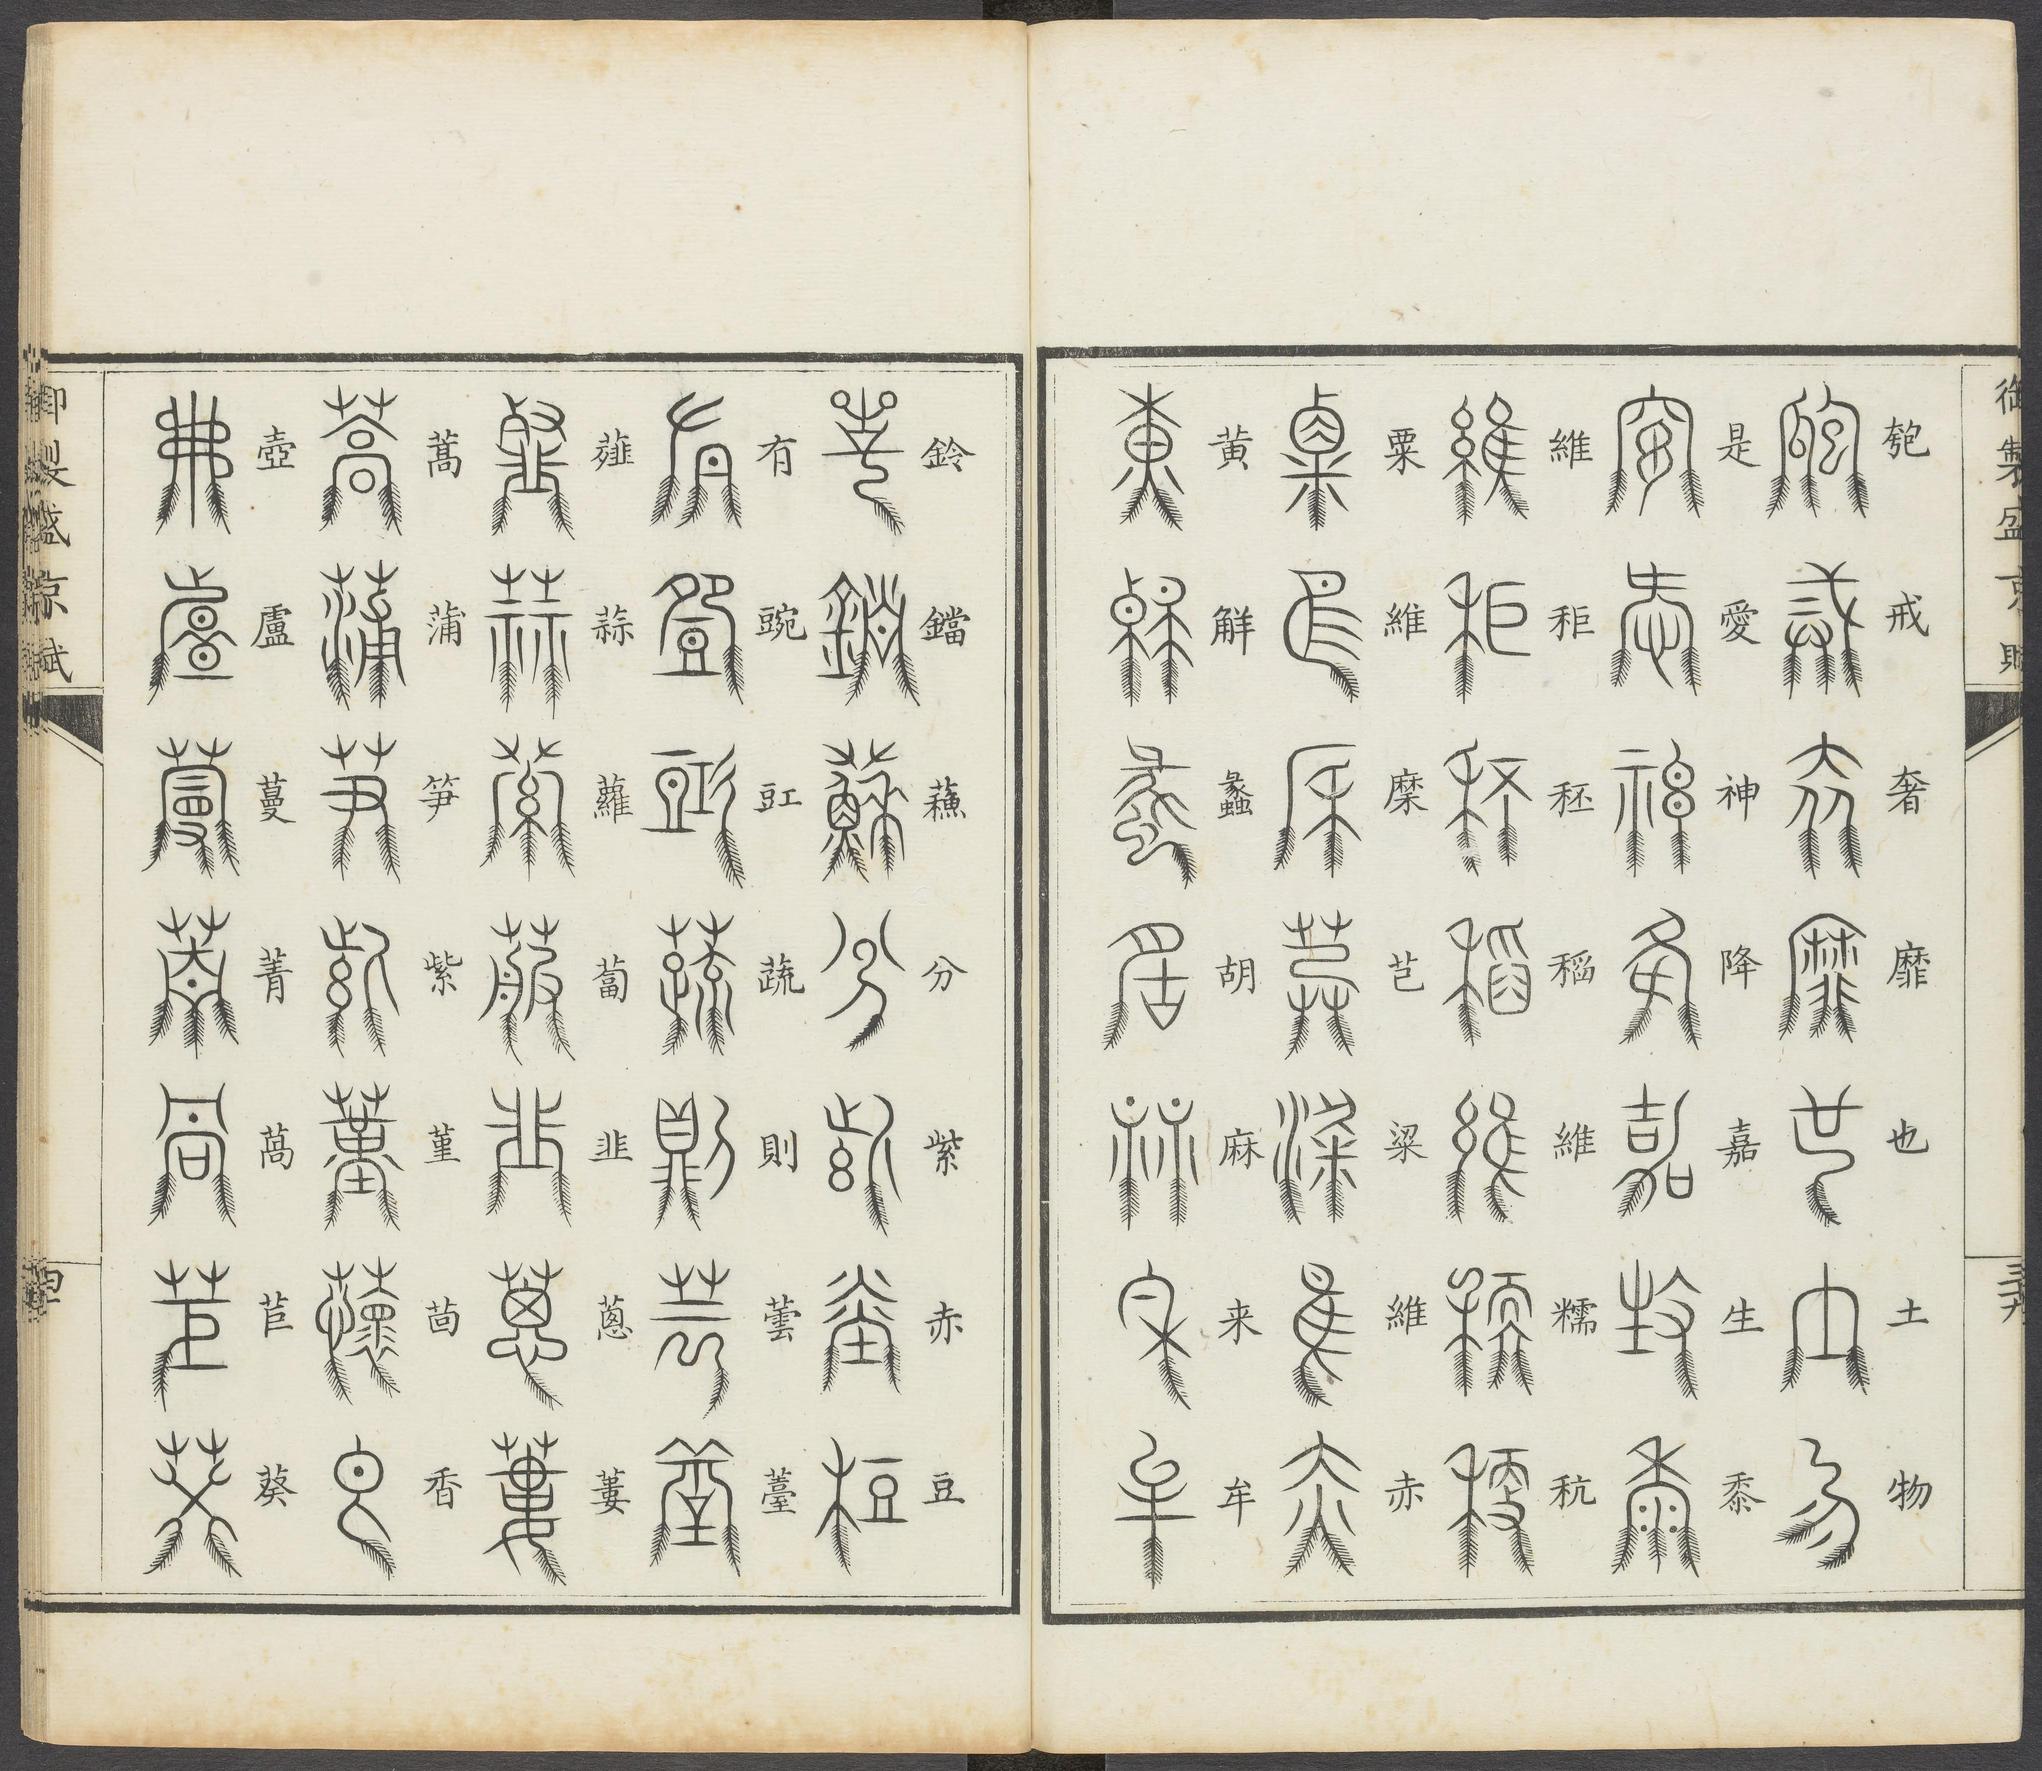 御製盛京賦
三十九
匏戒奢靡也土物
是愛神降嘉生黍
維秬秠稻維糯秔
粟維穈芑粱維赤
黄觧蠡胡麻来牟
鈴鐺蘓分紫赤豆
有豌豇蔬則蕓薹
薤蒜蘿蔔韭蔥蔞
蒿蒲笋紫堇茴香
壺盧蔓菁萵苣葵
御製盛京賦
四十